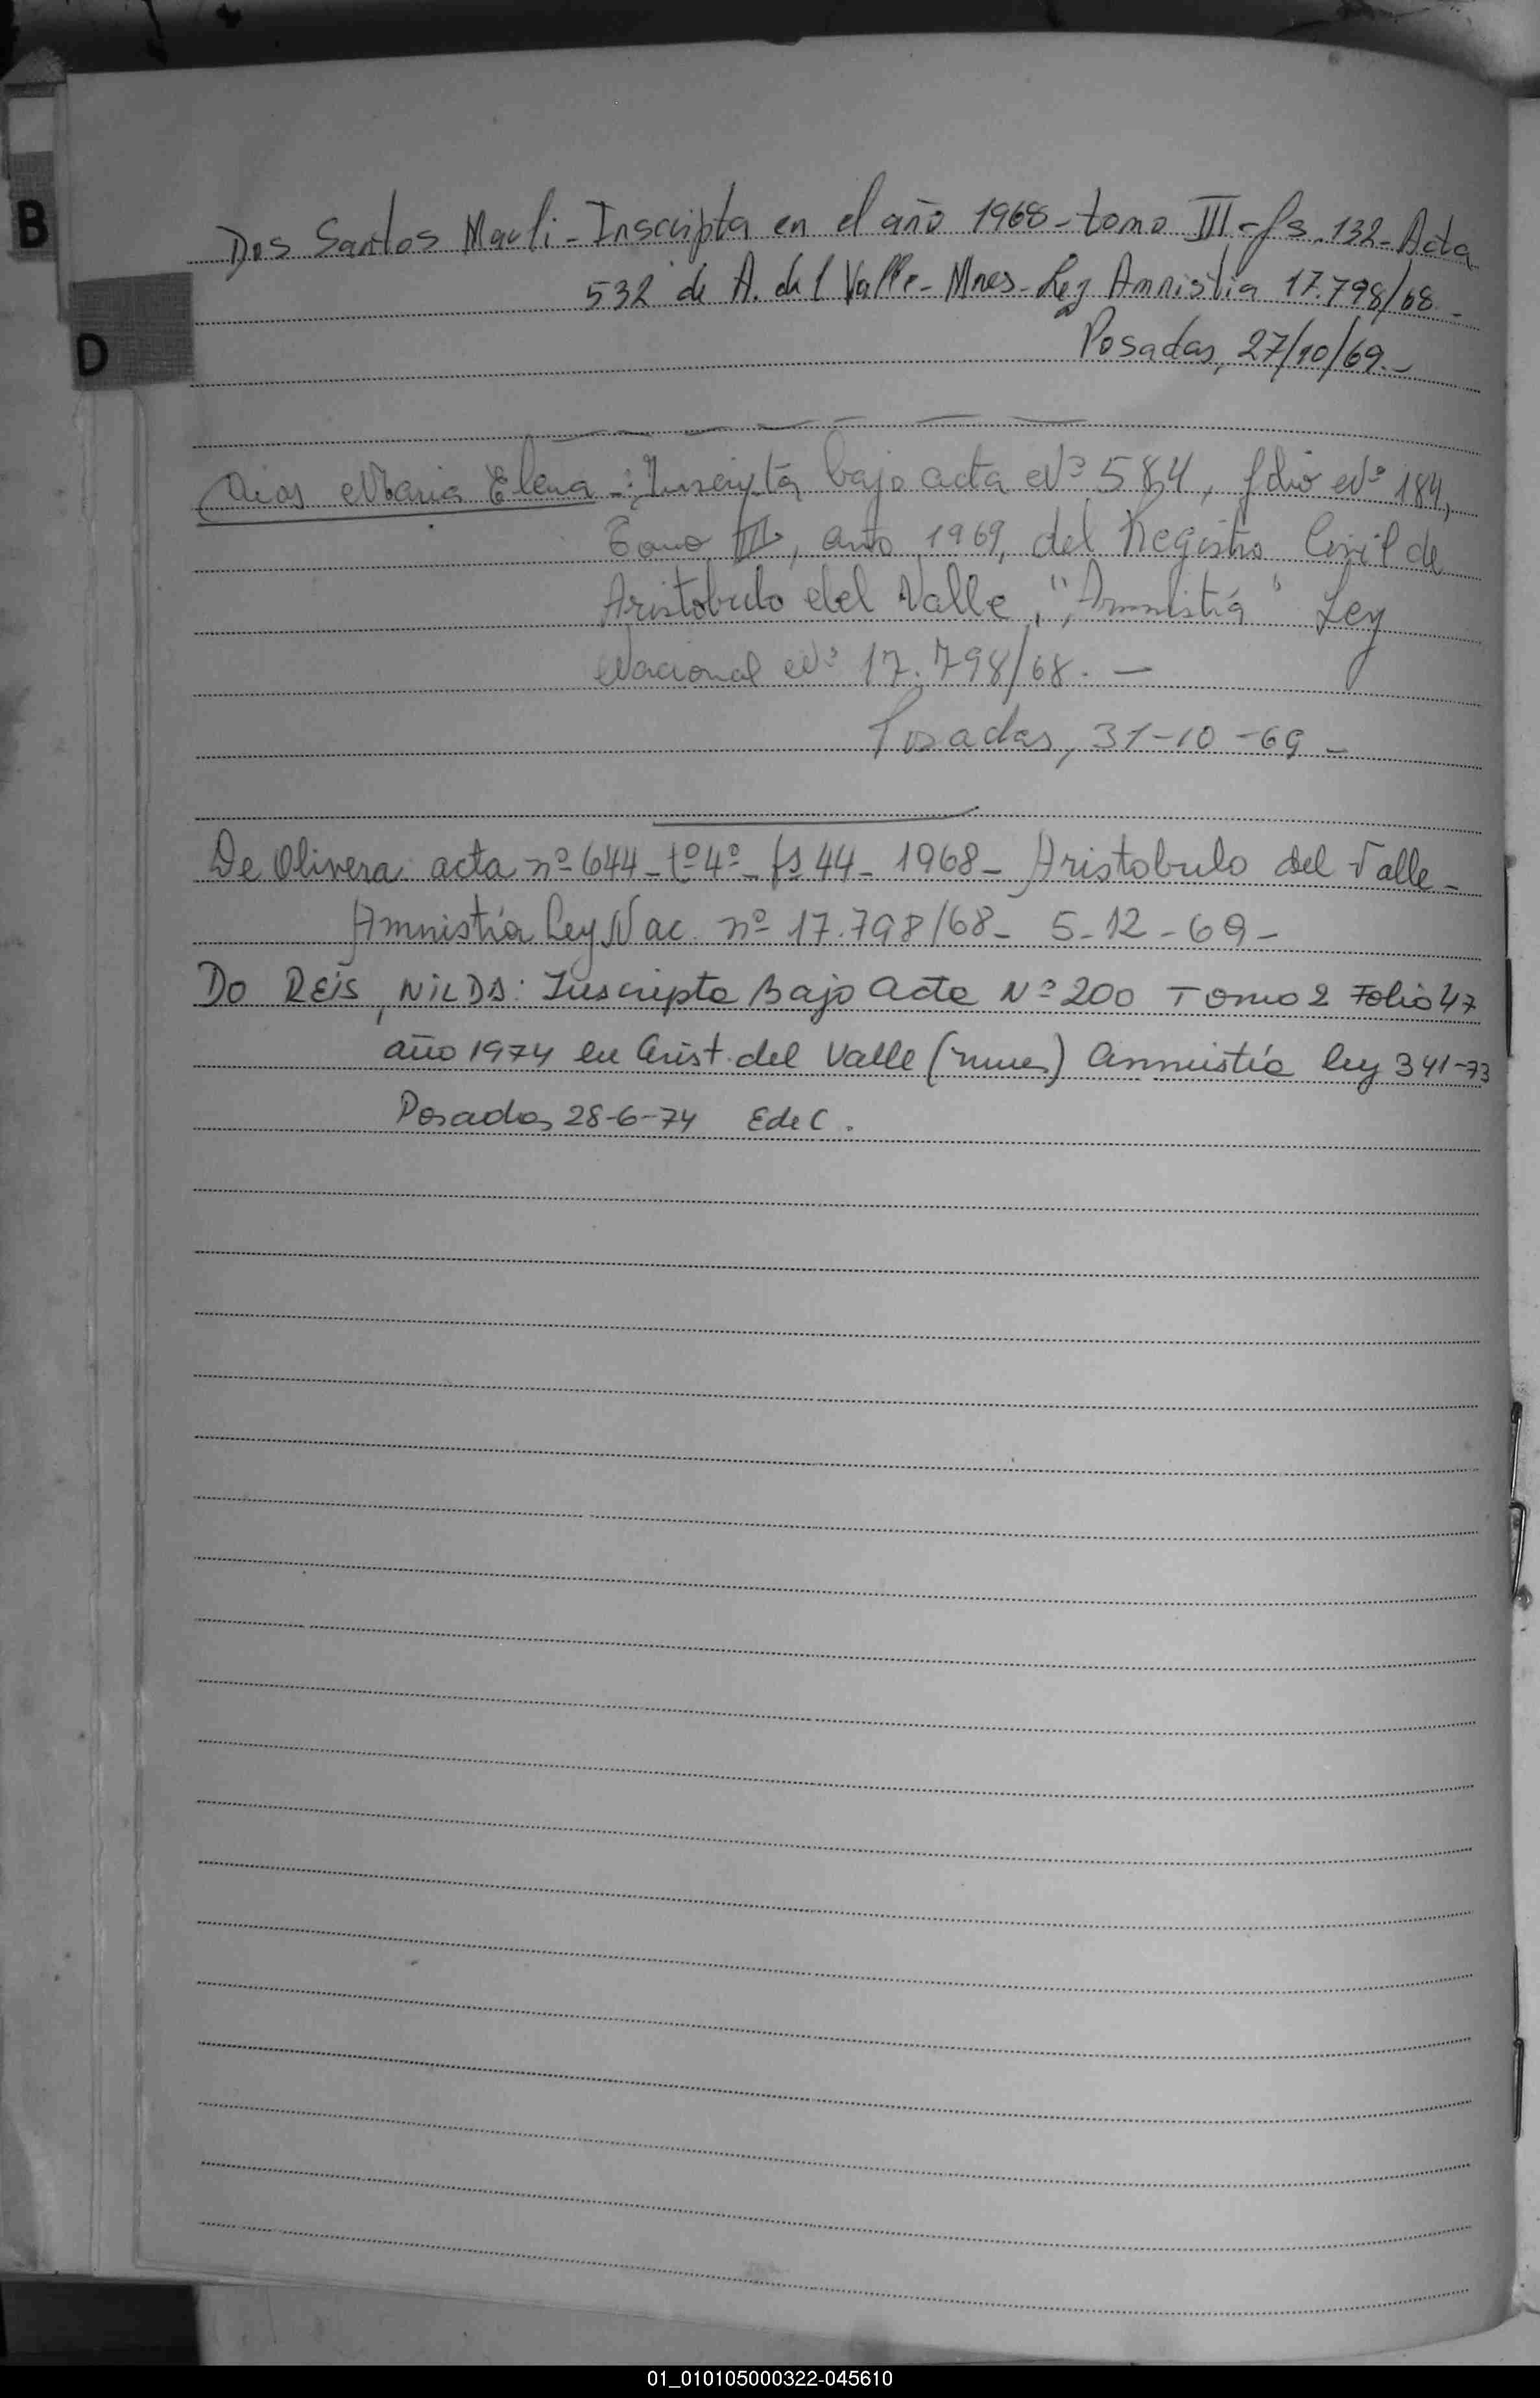 B
Dos Santos Marli - Inscripta en el año 1968 - tomo III - fs. 132 - Acta
532 de A. del Valle - Mnes - Ley Amnistia 17.798/68. -
D
Posadas, 27/10/69. -
Maria Elena - : Inscripta bajo acta Nº 584, folio Nº 184,
Tomo III, año 1969, del Registro Civil de
Aristobulo del Valle, "Amnistía" Ley
Nacional Nº 17.798/68. -
Posadas, 31-10-69 -
De Olivera: acta nº 644 - tº 4º - fs 44 - 1968 - Aristobulo del Valle -
Amnistía Ley Nac. nº 17.798/68 - 5-12-69 -
DO REIS, NILDA: Inscripta Bajo Acta Nº 200 Tomo 2 Folio 47
año 1974 en Arist. del Valle (mnes) Amnistía ley 341-73
Posadas, 28-6-74 EdeC.
01_010105000322-045610